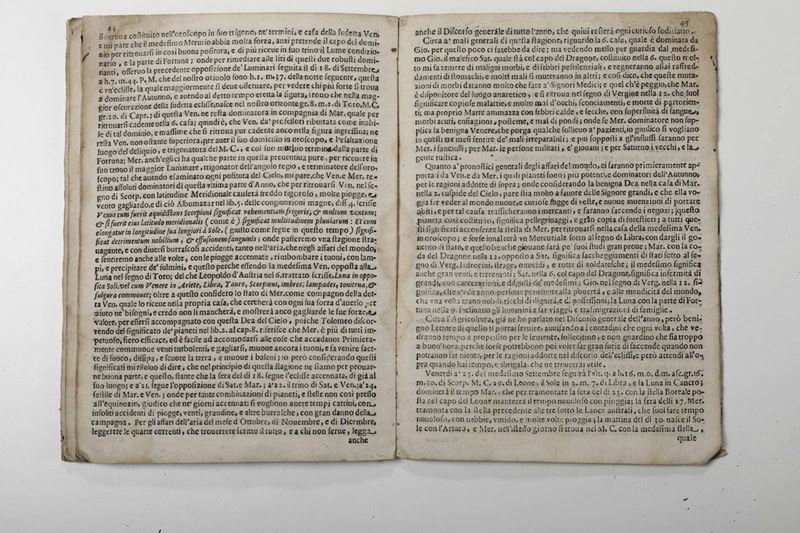 44
si troua costituito nell'oroscopo in suo trigono, ne' termini, e casa della sudetta Ven.
e mi pare che il medesimo Merurio abbia molta forza, anzi pretende il capo del domi-
nio per ritrouarsi in cosi buona positura, e di più riceue in suo trino il Lume condizio-
nario, e la parte di Fortuna; onde per rimediare alle liti di questi due robusti domi-
nanti, osseruo la precedente opposizione de' Luminari seguita il dì 18. di Settembre
a h.7. m.44. P. M. che del nostro oriuolo sono h.1. m.37. della notte seguente, questa
è vn'eclisse, la quale maggiormente si deue osseruare, per vedere chi più forte si troua
a dominare l'Autunno, e auendo al detto tempo eretta la figura, trouo che nella mag-
gior oscurazione della sudetta eclisse, nasce nel nostro orizonte gr.8. m.2. di Toro, M.C.
gr.20. di Capr.; di questa Ven. ne resta dominatora in compagnia di Mar. quale per
ritrouarsi cadente nella 6. casa; quindi è, che Ven. da' professori ributtata come inabi-
le di tal dominio, e massime che si ritroua pur cadente anco nella figura ingressiua; ne
resta Ven. non ostante superiora, per auer il suo domicilio in oroscopo, e l'esaltazione
luogo del deliquio, e trigonatora del M.C.; e così suo medesimo termine dalla parte di
Fortuna; Mer. anch'egli ci ha qualche parte in questa preuentiua pure, per riceuere in
suo trono il maggior Luminare, trigonator dell'angolo regio, e terminatore dell'oro-
scopo; tal che auendo esaminato ogni positura del Cielo, mi pare, che Ven. e Mer. re-
stino assoluti dominatori di questa vltima parte d'Anno, che per ritrouarsi Ven. nel se-
gno di Scorp. con latitudine Meridionale causerà freddo rigoroso, molte piogge, e
vento gagliardo, e di ciò Albumazar nel lib. 5. delle congiunzioni magne, diff.4. scrisse
Venus cum fuerit æquidistans Scorpioni significat vehementiam frigoris, & multum ventum;
& si fuerit eius latitudo meridionalis (come è) significat multitudinem pluuiarum: Et cum
elongatur in longitudine sua longiori à Sole, (giusto come segue in questo tempo) signifi-
cat detrimentum nobilium, & effusionem sanguinis; onde passeremo vna stagione stra-
uagante, e con diuersi burrascosi accidenti, tanto nell'aria, che negli affari del mondo,
e sentiremo anche alle volte, con le piogge accennate, rimbombare i tuoni, con lam-
pi, e precipitare de' fulmini, e questo perche essendo la medesima Ven. opposta alla
Luna nel segno di Toro; del che Leopoldo d'Austria nel 6. trattato scrisse, Luna in oppo-
sita Soli, vel cum Venere in Ariete, Libra, Tauro, Scorpione, imbres, lampades, tonitrua, &
fulgura commouet; oltre a questo considero lo stato di Mer. come compagno della det-
ta Ven. quale lo riceue nella propria casa, che cercherà con ogni sua forza d'auerlo per
aiuto ne' bisogni, e credo non li mancherà, e mostrerà anco gagliarde le sue forze, e
valore, per essersi accompagnato con questa Dea del Cielo, poiche Tolomeo discor-
rendo del significato de' pianeti nel lib.2. al cap.8. riferisce che Mer. è più di tutti im-
petuoso, fiero efficace, ed è facile ad accomodarsi alle cose che accadano: Primiera-
mente commuoue venti turbolenti, e gagliardi, muoue ancora i tuoni, e fa venire sae-
tte di fuoco, dissipa, e scuote la terra, e muoue i baleni; io però considerando questi
significati mi risoluo di dire, che nel principio di questa stagione ne siamo per prouar-
ne buona parte, e questo, stante che la sera del dì 18. segue l'eclisse accennata, di già al
suo luogo; e a' 21. segue l'opposizione di Sat. e Mar.; a' 22. il trino di Sat. e Ven. ; a' 24.
sestile di Mar. e Ven.; onde per tante combinazioni di pianeti, e stelle non così presso
all'equinozio, giudico che ne' giorni accennati si vogliono auere tempi cattiui, con
insoliti accidenti di piogge, venti, grandine, e altre burrasche, con gran danno della
campagna. Per gli affari dell'aria del mese d'Ottobre, di Nouembre, e di Dicembre,
leggerete le quarte correnti, che trouerrete scritto il tutto, e a chi non serue, legga
anche
45
anche il Discorso generale di tutto l'anno, che quiui resterà ogni curioso sodisfatto.
Circa a' mali generali di questa stagione, riguardo la 6. casa, quale è dominata da
Gio. per questo poco ci sarebbe da dire; ma vedendo messo per guardia dal medesi-
mo Gio. il malefico Sat. quale stà col capo del Dragone, costituito nella 6. questo mol-
to mi fa temere di maligni morbi, e di febri pestilenziali, e regneranno assai raffred-
damenti di stomachi, e molti mali si muteranno in altri; e così dico, che queste muta-
zioni di morbi daranno molto che fare a' Signori Medici; e quel ch'è peggio, che Mar.
è dispositore del luogo anaretico, e si ritroua nel segno di Vergine nella 12. che suol
significare copiose malattie, e molto mal d'occhi, sconciamenti, e morte di partorien-
ti; ma proprio Marte ammazza con febbri calde, e secche, con superfluità di sangue,
morbi acuti, enfiagioni, posteme, e mal di pondi; onde se Mer. dominatore non sup-
plica la benigna Venere, che porga qualche solleuo a' pazienti, io giudico si vogliano
in questi tre mesi sentire de' mali irreparabili; e più sopposti agl'influssi saranno per
Mer. i fanciulli; per Mar. le persone militari, e' giouani; e per Saturno i vecchi, e la
gente rustica.
Quanto a' pronostici generali degli affari del mondo, ci saranno primieramente ap-
portati da Ven. e da Mer. i quali pianeti sono i più potenti, e dominatori dell'Autunno,
per le ragioni addotte di sopra; onde considerando la benigna Dea nella casa di Mar.
nella 2. cuspide del Cielo, pare stia molto a fauore delle Signore grandi, e che ella vo-
glia far veder al mondo nuoue, e curiose fogge di veste, e nuoue inuenzioni di portare
abiti, e per tal causa trafficheranno i mercanti, e saranno faccende i negozj; questo
pianeta così costituito, significa pellegrinaggi, e gran copia di forestieri; a tutti que-
sti significati acconsente la stella di Mer. per ritrouarsi nella casa della medesima Ven.
in oroscopo; e forse inalzerà vn Mercuriale sotto al segno di Libra, con dargli il go-
uerno di stato, e quello benche giouane sarà pe' suoi studi gran prone; Mar. con la co-
da del Dragone nella 12. opposto a Sat. significa saccheggiamenti di stati sotto al se-
gno di Verg. ladrocinj, strage, omicidj, e rotte di soldatesche; il medesimo significa
anche gran venti, e terremoti; Sat. nella 6. col capo del Dragone, significa infermità di
grandi, con carcerazioni, e disgusti de' medesimi; Gio. nel segno di Verg. nella 12. si-
gnifica, che si vedranno persone peruenute alla pouertà, e alle mendicità del mondo,
che vna volta erano nobili, ricchi di dignità, e di possessioni, la Luna con la parte di For-
tuna nella 9. inclinano gli huomini a far viaggi, e trasmigrazioni di famiglie.
Circa l'Agricoltura, già ne ho parlato nel Discorso generale dell'anno, però beni-
gno Lettore di quello ti potrai seruire, auuisando a i contadini che ogni volta, che ve-
dranno tempo a proposito per le semente, sollecitino, e non guardino che sia troppo
a buon'hora, perche forse potrebbono poi voler far gran furia di faccende quando non
potranno far niente, per le ragioni addotte nel discorso dell'eclisse; però attendi all'o-
pra quando hai tempo, e sbrigala, che ne trouerrai vtile.
Venerdì a' 25. del medesimo Settembre segurà l'vlt. q. a h.16. m.0. dm. asc. gr.16.
m.30. di Scorp. M. C. 29. di Leone, il Sole in 2. m. 7. di Libra, e la Luna in Cancro;
dominerà il tempo Mar. che per tramontare la sera del dì 25. con la stella Boreale po-
sta nel capo del Leone manterrà il tempo nuuoloso con pioggia; la sera dell'i 27. Mer.
tramonta con la stella precedente alle tre sotto le Lance australi, che suol fare tempo
nuuoloso, con nebbie, vmido, e molte volte pioggia; la mattina del dì 30. nasce il So-
le con l'Arturo, e Mer. nell'istesso giorno si troua nel M. C. con la medesima stella,
quale